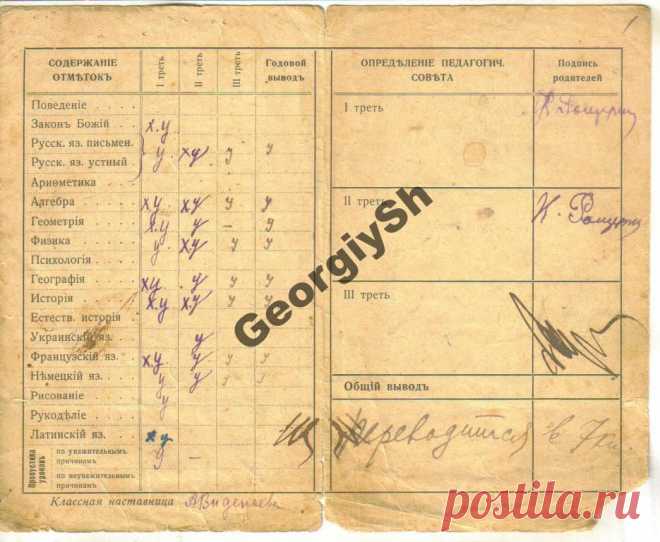 1
СОДЕРЖАНІЕ ОТМѢТОКЪ I треть II треть III треть Годовой выводъ
Поведеніе
Законъ Божій х.у
Русск. яз. письмен.
Русск. яз. устный у ху у у
Ариѳметика
Алгебра ху ху у у
Геометрія х.у у – у
Физика у ху у у
Психологія
Географія ху у у у
Исторія х.у х.у у у
Естеств. исторія
Украинскій яз. у
Французскій яз. ху у у у
Нѣмецкій яз. у у у у
Рисованіе у
Рукодѣліе
Латинскій яз. ху
Пропустила уроковъ
по уважительнымъ причинамъ 9 –
по неуважительнымъ причинамъ
Классная наставница
ОПРЕДѢЛЕНІЕ ПЕДАГОГИЧ. СОВѢТА Подпись родителей
I треть
II треть К.
III треть
Общій выводъ
Переводится в 7 кл.
GeorgiySh
postila.ru